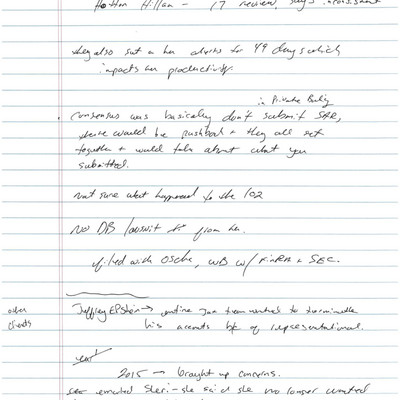 17 review, says inconsistent
they also sat on her alerts for 49 days which
impacts her productivity.
in Private Banking
consensus was basically don't submit SAR,
there would be pushback + they all sat
together + would talk about what you
submitted.
not sure what happened to the 102
No DB lawsuit from her.
filed with OSHA, WB w/ FINRA + SEC.
other clients
Jeffrey Epstein → entire team wanted to terminate
his accounts b/c of reputational.
2015 → brought up concerns.
emailed she said she no longer wanted